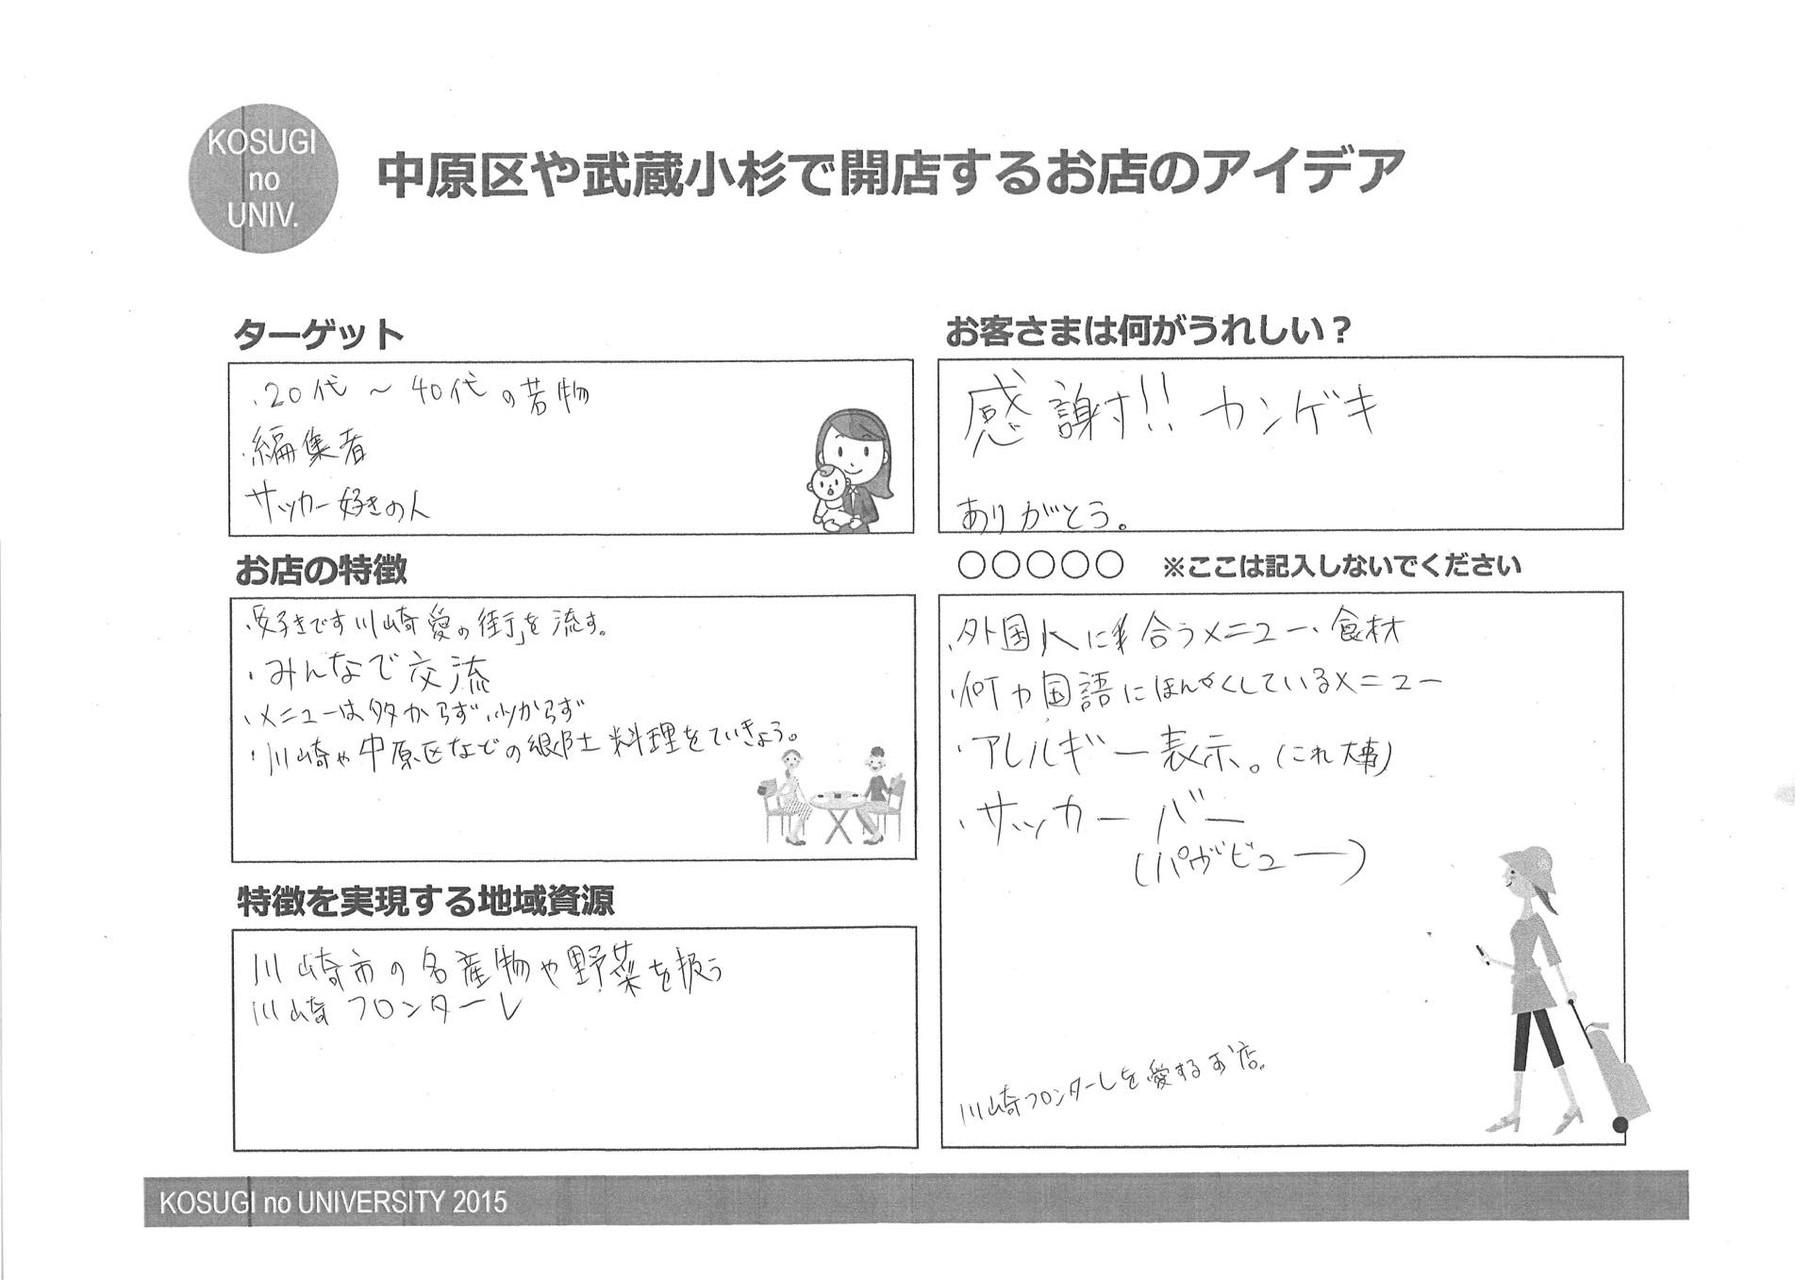 KOSUGI
no
UNIV.
中原区や武蔵小杉で開店するお店のアイデア
ターゲット
・20代～40代の若物
・編集者
サッカー好きの人
お客さまは何がうれしい？
感謝!! カンゲキ
ありがとう。
お店の特徴
・「好きです川崎愛の街」を流す。
・みんなで交流
・メニューは多からず、少からず
・川崎や中原区などの郷土料理をていきょう。
○○○○○ ※ここは記入しないでください
・外国人に合うメニュー、食材
・何カ国語にほんやくしているメニュー
・アレルギー表示。(これ大事)
・サッカーバー
(パヴビュー)
川崎フロンターレを愛するお店。
特徴を実現する地域資源
川崎市の名産物や野菜を扱う
川崎フロンターレ
KOSUGI no UNIVERSITY 2015